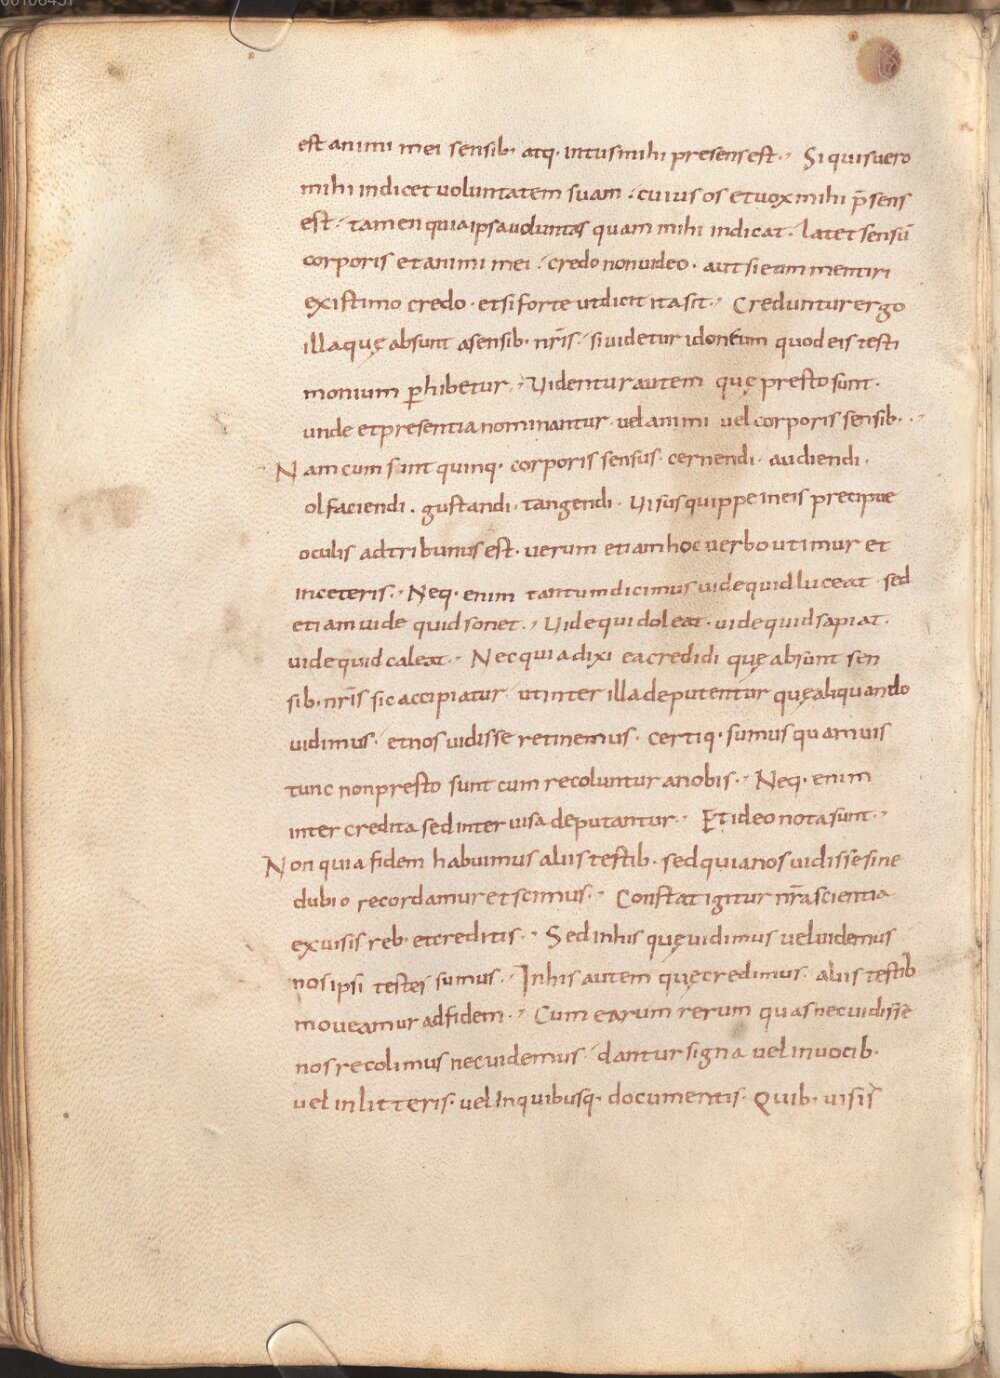 est animi mei sensib· atq· intus mihi presens est·, Si quis uero
mihi indicet uoluntatem suam : cuius os et uox mihi p̄sens
est· tamen quia ipsa uoluntas quam mihi indicat· latet sensū
corporis et animi mei· credo non uideo· aut si eum mentiri
existimo credo· et si forte ut dicit ita sit·, Creduntur ergo
illa quę absunt a sensib· nr̄is· si uidetur idoneum quod eis testi
monium ꝑhibetur·, Uidentur autem quę presto sunt·
unde et presentia nominantur· uel animi uel corporis sensib·,
Nam cum sint quinq· corporis sensus· cernendi· audiendi·
olfaciendi· gustandi· tangendi· Uisus quippe in eis precipue
oculis adtribunus est· uerum etiam hoc uerbo utimur et
in ceteris·, Neq· enim tantum dicimus uide quid luceat· sed
etiam uide quid sonet·, Uide qui doleat· uide quid sapiat·
uide quid caleat· Nec quia dixi ea credidi quę absunt sen
sib· nr̄is sic accipiatur· ut inter illa deputentur quę aliquando
uidimus· et nos uidisse retinemus· certiq· sumus quamuis
tunc non presto sunt cum recoluntur a nobis·, Neq· enim
inter credita sed inter uisa deputantur·, Et ideo nota sunt·,
Non quia fidem habuimus aliis testib· sed quia nos uidisse sine
dubio recordamur et scimus·, Constat igitur nr̄a scientia
ex uisis reb· et creditis·, Sed in his quę uidimus uel uidemus
nos ipsi testes sumus·, In his autem quę credimus· aliis testib
moueamur ad fidem·, Cum earum rerum quas nec uidisse
nos recolimus nec uidemus· dantur signa uel in uocib·
uel in litteris· uel in quibusq· documentis· Quib· uisis